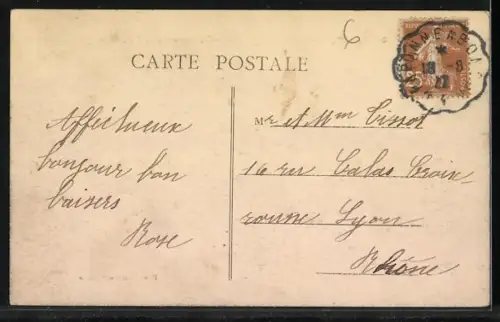 6
CARTE POSTALE
18 -8
22
Affectueux
bonjour bon
baisers
Rose
Mr et Mme Tissot
16 ru Calas Croix-
rousse Lyon
Rhône